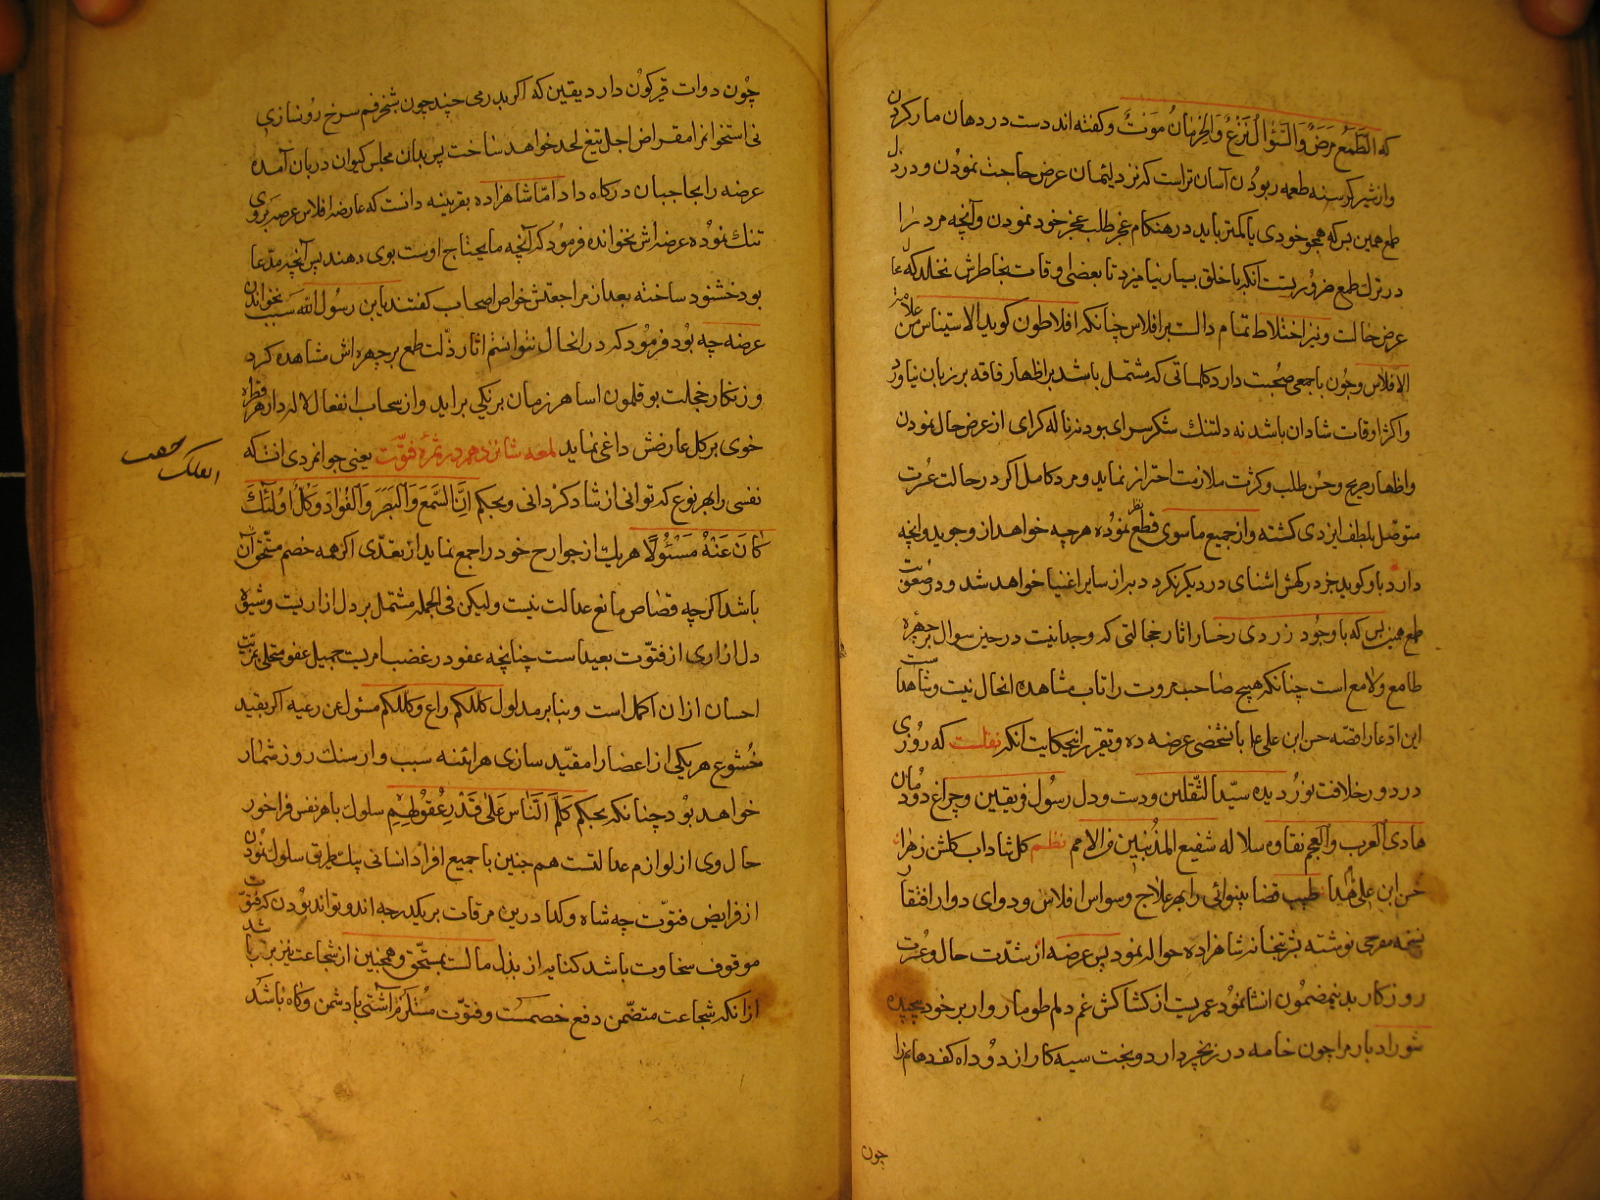 که الطَّمَعُ مَرَضٌ وَالسُّؤالُ نَزْعٌ وَالحِرمانُ مَوْتٌ وکفته اند دست در دهان مار کردن
واز شیر کرسنه طعمه ربودن آسان تراست که نزد لئیمان عرض حاجت نمودن و در ذل
طمع همین بس که همجو خودی یا کمتر باید در هنکام عجز طلب عجز خود نمودن وآنچه مرد را
در ترك طمع ضرور یست انکه با خلق بسیار نیامیزد تا بعضی اوقات بخاطرش نخلد که
عرض حالت ونیز اختلاط تمام دالست بر افلاس چنانکه افلاطون کوید الاستیناس من علامة
الافلاس وچون با جمعی صحبت دارد کلماتی که مشتمل باشد بر اظهار فاقه بر زبان نیاورد
واکثر اوقات شادان باشد نه دلتنك شکر سرای بود نه ناله کرای از عرض حال نمودن
واظهار صریح وحسن طلب وکثرت ملازمت احتراز نماید ومرد کامل اکر در حالت عسرت
متوصّل بلطف ایزدی کشته واز جمیع ماسوی قطع نظر نموده هرچه خواهد از وجوید وانچه
دارد باو کوید جز در کهش اشنای در دیکر نکردد براز سایر اغنیا خواهد شد و در صعوبت
طمع همین بس که با وجود زردی رخسار اثار خجالتی که وجدانیت در حین سوال بر چهره
طامع ولامع است چنانکه هیچ صاحب مروت را تاب مشاهده انحال نیست وشاهد
این ادّعا را قصّه حسن ابن علی عا با شخصی عرضه ده وتقریر اینحکایت انکه نقلست که روزی
در دور خلافت نور دیده سیّد الثّقلین ودست ودل رسول فریقین وچراغ دودمان
هادی العرب والعجم نقاوه سلاله شفیع المذنبین فی الامم نظم کل شاداب کلشن زهرا
حسن ابن علی طبیب قضا بینوائی را بهر علاج وسواس افلاس ودوای دوار افتقار
نسخه مفرحی نوشته بشربتخانه شاهزاده حواله نمود پس عرضه از شدّت حال وعسرت
روزکار بدینمضمون انشا نمود عمریست از کشاکش غم دلم طومار وار بر خود پیچیده
شور ادبار مرا چون خامه در زنجیر دارد وبخت سیه کار از دود اه کف دهانم را
چون
چون دوات قیرکون دارد یقین که اکر بدرمی چند چون شنجرفم سرخ رو نسازی
نی استخوانم را مقراض اجل تیغ لحد خواهد ساخت پس بدان مجلس کیوان دربان آمده
عرضه را بحاجبان درکاه داد امّا شاهزاده بقرینه دانست که عارضه افلاس عرصه بر وی
تنك نموده عرضه اش نخوانده فرمود که آنچه مایحتاج اوست بوی دهند پس آنچه مدّعا
بود خشنود ساخته بعد از مراجعتش خواص اصحاب کفتند یابن رسول الله سبب نخواندن
عرضه چه بود فرمود که در انحال نتوانستم اثار ذلت طمع بر چهره اش مشاهده کرد
وزنکار خجلت بوقلمون اسا هر زمان برنکی براید واز سحاب انفعال لاله دار هر قطره
خوی بر کل عارضش داغی نماید لمعه شانزدهم در ثمرهٔ فتوّت یعنی جوانمردی انست که
نفسی را بهر نوع که توانی از شاد کردانی وبحکم اِنَّ السَّمعَ وَالبَصَرَ وَالفُؤادَ وَکُلُّ اولئِكَ
کانَ عَنْهُ مَسْئُولًا هر یك از جوارح خود را جمع نماید از تعدّی اکر همه خصم مستحق آن
باشد اکرچه قصاص مانع عدالت نیست ولیکن فی الجمله مشتمل بر دل ازاریست وشیوه
دل ازاری از فتوّت بعید است چنانچه عفو در غضب امریست جمیل عفو متحلی بمزیّت
احسان از ان اکمل است وبنا بر مدلول کلّکم راع وکلّکم مسئول عن رعیه اکر بقید
خشوع هر یکی از اعضا را مقیّد سازی هر اینه سبب وارستك روز شمار
خواهد بود چنانکه بحکم کَلِّمِ النّاسَ عَلی قَدْرِ عُقُولِهِم سلوك با هر نفس فراخور
حال وی از لوازم عدالتست هم چنین با جمیع افراد انسانی بیك طریق سلوك نمودن
از فرایض فتوّت چه شاه وکدا درین مرقات بر یکدرجه اند وتواند بودن که فتوّت
موقوف سخاوت باشد کنایه از بذل مالست بمستحق وهمچنین از شجاعت نیز بری باشد
ازانکه شجاعت متضمّن دفع خصمست وفتوّت مستلزم آشتی با دشمن وکاه باشد